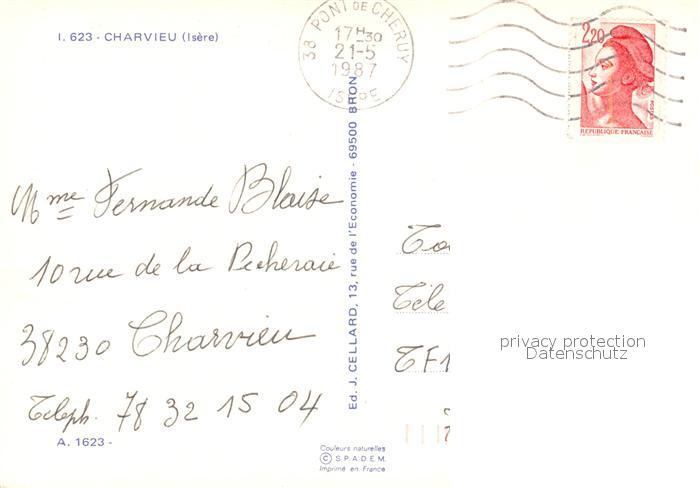 I. 623 - CHARVIEU (Isère)
38 PONT DE CHERUY
17H30
21-5
1987
ISERE
2,20
POSTES
REPUBLIQUE FRANÇAISE
Mme Fernande Blaise
10 rue de la Pecheraie
38230 Charvieu
Teleph. 78 32 15 04
A. 1623 -
Ed. J. CELLARD, 13, rue de l'Economie - 69500 BRON
Couleurs naturelles
© S.P.A.D.E.M.
Imprimé en France
TF1
privacy protection
Datenschutz